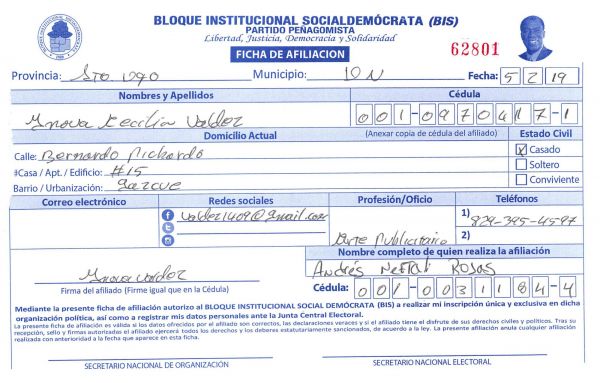 BLOQUE INSTITUCIONAL SOCIALDEMÓCRATA (BIS)
PARTIDO PEÑAGOMISTA
Libertad, Justicia, Democracia y Solidaridad
FICHA DE AFILIACION
62801
Provincia: Sto Dgo Municipio: DN Fecha: 5 2 19
Nombres y Apellidos Cédula
Ynova Cecilia Valdez 001-0970417-1
Domicilio Actual (Anexar copia de cédula del afiliado) Estado Civil
Calle: Bernardo Pichardo X Casado
#Casa / Apt. / Edificio: #15 Soltero
Barrio / Urbanización: Gazcue Conviviente
Correo electrónico Redes sociales Profesión/Oficio Teléfonos
Valdez1409@gmail.com 1) 829-395-4597
Arte Publicitario 2)
Nombre completo de quien realiza la afiliación
Ynova Valdez Andrés Neftali Rosas
Firma del afiliado (Firme igual que en la Cédula) Cédula: 001-0031184-4
Mediante la presente ficha de afiliación autorizo al BLOQUE INSTITUCIONAL SOCIAL DEMÓCRATA (BIS) a realizar mi inscripción única y exclusiva en dicha
organización política, así como a registrar mis datos personales ante la Junta Central Electoral.
La presente ficha de afiliación es válida si los datos ofrecidos por el afiliado son correctos, las declaraciones veraces y si el afiliado tiene el disfrute de sus derechos civiles y políticos. Tras su
recepción, sello y firmas autorizadas el afiliado ejercerá todos los derechos y los deberes estatutariamente sancionados, de acuerdo a la ley. La presente afiliación anula cualquier afiliación
realizada con anterioridad a la fecha que aparece en esta ficha.
SECRETARIO NACIONAL DE ORGANIZACIÓN SECRETARIO NACIONAL ELECTORAL